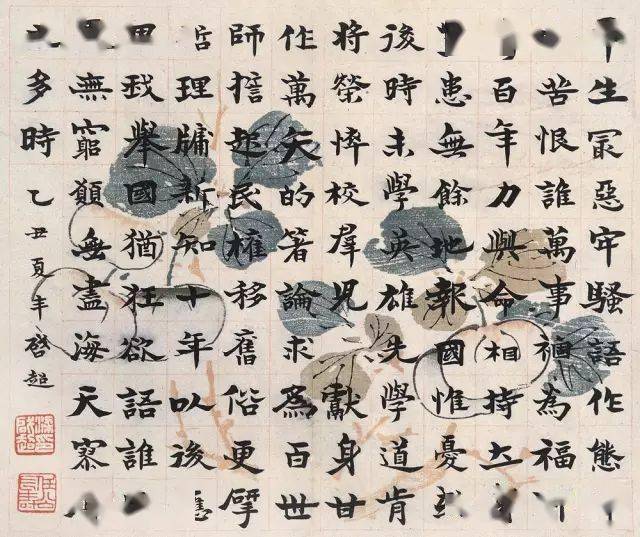 生冣惡牢騷語作態
苦恨誰萬事禍為福
百年力與命相持立
患無餘地報國惟憂
後時未學英雄先學道肯
將榮悴校羣兒獻身甘
作萬矢的著論求為百世
師擔起民權移舊俗更
理牖新知十年以後
我舉國猶狂欲語誰
無窮願無盡海天寥
多時乙丑夏年啓超